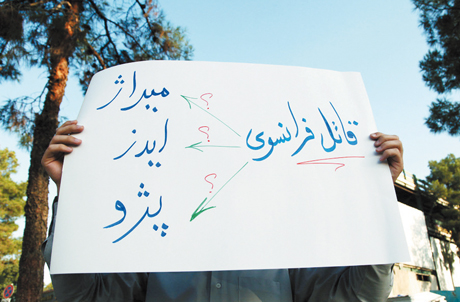 میراژ
؟
ایدز
؟
قاتل فرانسوی
؟
پژو